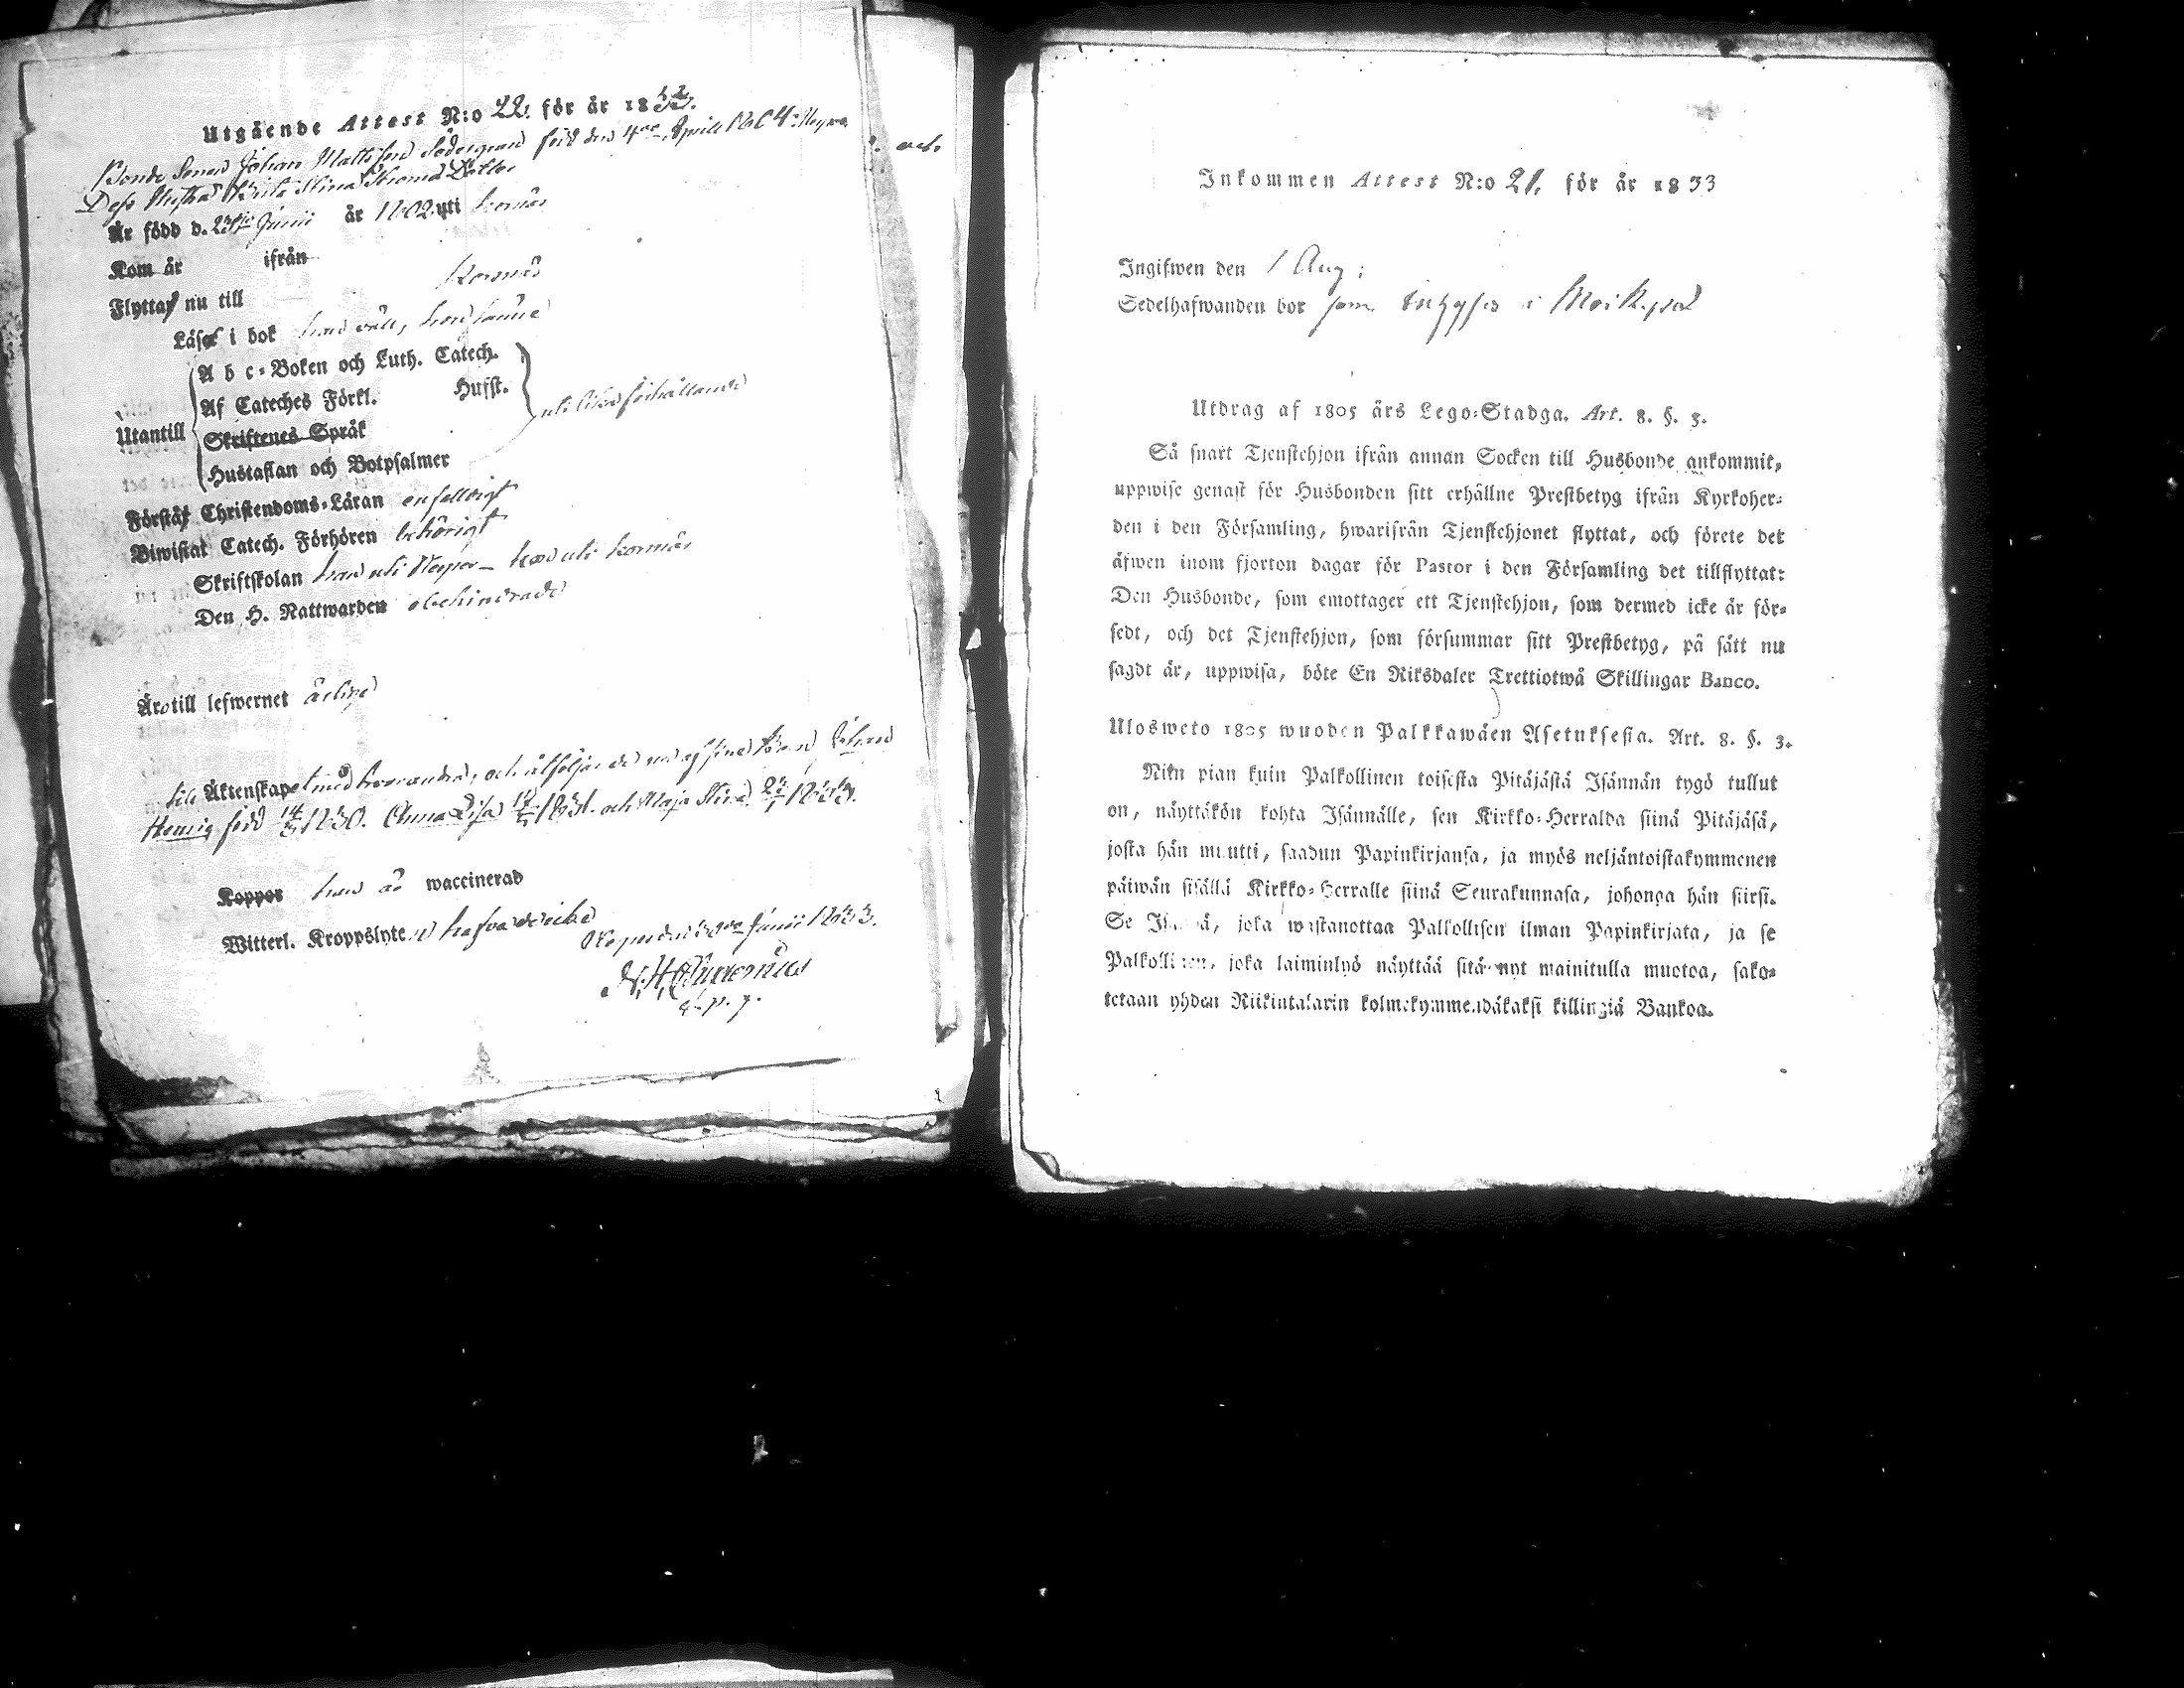 Utgående Attest N:o 22. för år 18
Bonde Sonen Johan Mattsson Södergran född den 4de April 1804
Dess Hustru Brita Stina Thomæ Dotter
Är född d. Junii år 1802 uti Korsnäs
Kom år ifrån
Flyttar nu till Korsnäs
Läser i bok
A b c-Boken och Luth. Catech.
Af Cateches Förkl. Husst.
Utantill
Skriftenes Språk
uti lika förhållande
Hustaflan och Botpsalmer
Förstår Christendoms-Läran enfaldigt
Biwistat Catech. Förhören behörigt
Skriftskolan uti Korsnäs
Den H. Nattwarden obehindrade
Äro till lefwernet ärlige
till Äktenskapet med hvarandra, och åtföljas de nu af sina barn Johan
Henrig född 1830. Anna Lisa 1831. och Maja Stina 1833.
Koppor han är waccinerad
Witterl. Kroppslyten hafva de icke
Junii 1833.
Inkommen Attest N:o 21. för år 1833
Ingifwen den 1 Aug:
Sedelhafwanden bor som i
Utdrag af 1805 års Lego-Stadga. Art. 8. §. 3.
Så snart Tjenstehjon ifrån annan Socken till Husbonde ankommit,
uppwise genast för Husbonden sitt erhållne Prestbetyg ifrån Kyrkoher-
den i den Församling, hwarifrån Tjenstehjonet flyttat, och förete det
äfwen inom fjorton dagar för Pastor i den Församling det tillflyttat:
Den Husbonde, som emottager ett Tjenstehjon, som dermed icke är för-
sedt, och det Tjenstehjon, som försummar sitt Prestbetyg, på sätt nu
sagdt är, uppwisa, böte En Riksdaler Trettiotwå Skillingar Banco.
Ulosweto 1805 wuoden Palkkawäen Asetuksesta. Art. 8. §. 3.
Niin pian kuin Palkollinen toisesta Pitäjästä Isännän tygö tullut
on, näyttäkön kohta Isännälle, sen Kirkko-Herralda siinä Pitäjäsä,
josta hän muutti, saadun Papinkirjansa, ja myös neljäntoistakymmenen
päiwän sisällä Kirkko-Herralle siinä Seurakunnasa, johonga hän siirsi.
Se Isändä, joka wastanottaa Palkollisen ilman Papinkirjata, ja se
Palkollinen, joka laiminlyö näyttää sitä nyt mainitulla muotoa, sako-
tetaan yhden Riikintalarin kolmekymmendäkaksi killingiä Bankoa.